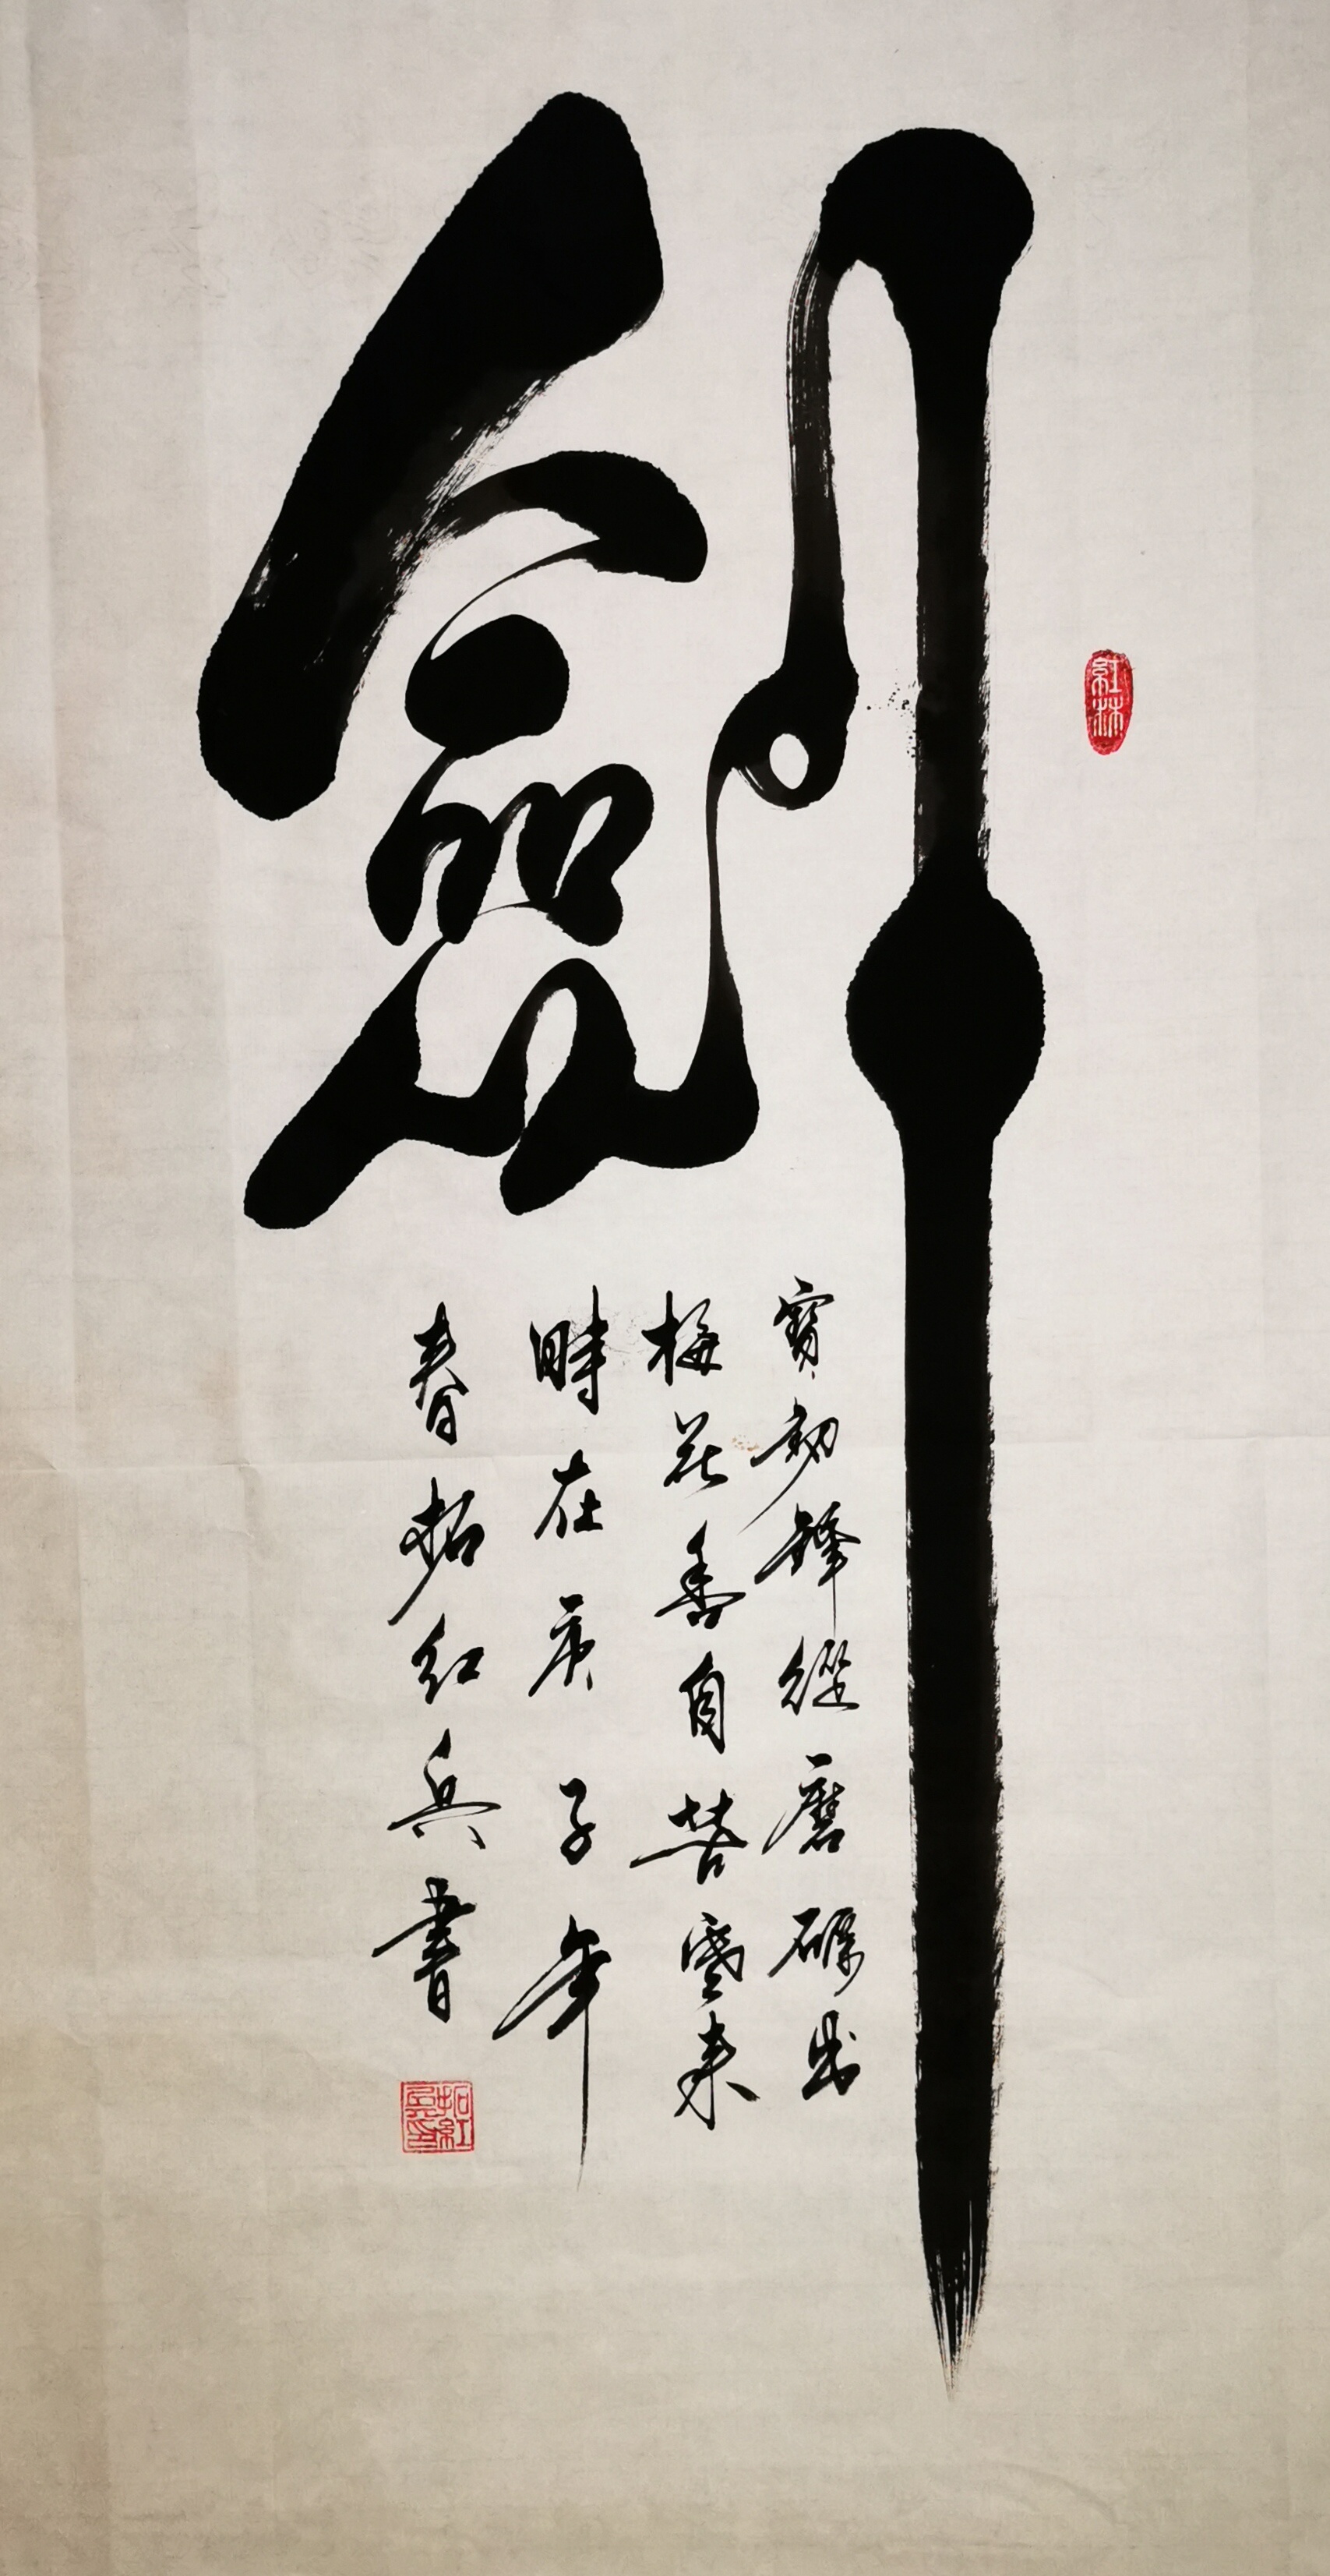 劍
寶劍鋒從磨礪出
梅花香自苦寒來
時在庚子年
春拓紅兵書
紅林